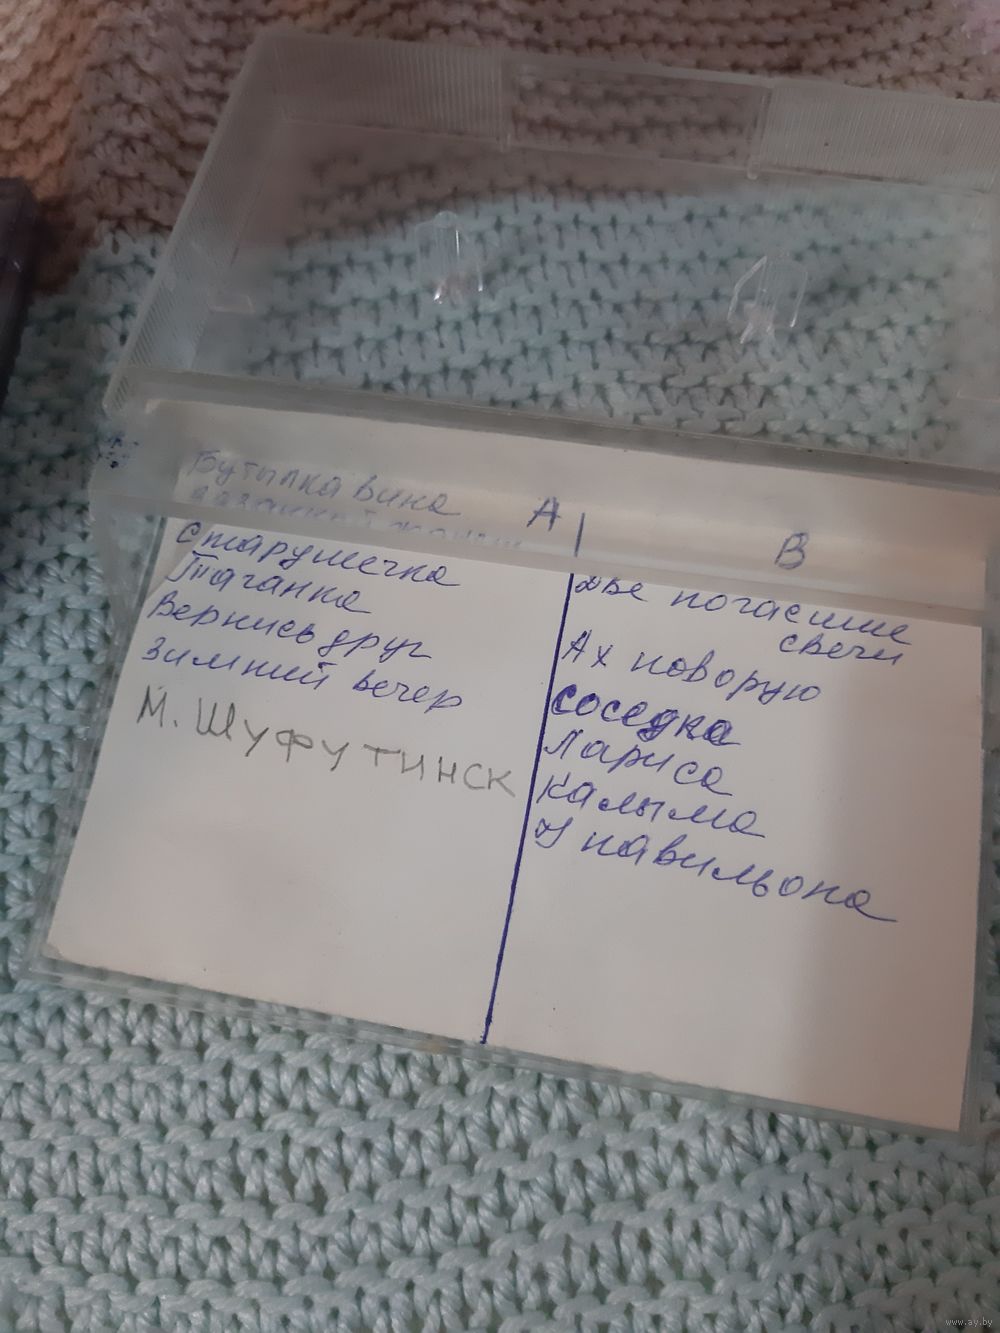 Бутылка вина
А
Старушечка
Таганка
Вернись друг
Зимний вечер
М. Шуфутинск
В
Две погасшие
свечи
Ах поворую
Соседка
Лариса
Калыма
У павильона
www.ay.by